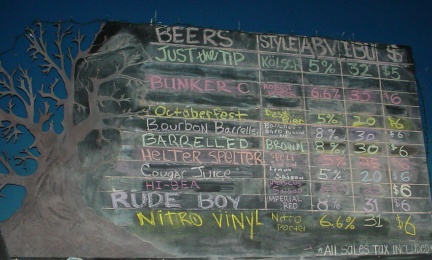 BEERS STYLE ABV IBU $
JUST the TIP KÖLSCH 5% 32 $5
BUNKER C 6.6% 55 6
Octoberfest Fest Bier 5% 20 $6
Bourbon Barrelled 8% 30
BARRELLED BROWN 8% 30 $6
HELTER SPELTER
Cougar Juice Lemon Saison 5% 20 $6
HI-BEA $6
RUDE BOY IMPERIAL RED 8% 31 $6
NITRO VINYL Nitro Porter 6.6% 31 $6
*All Sales TAX INCLUDED